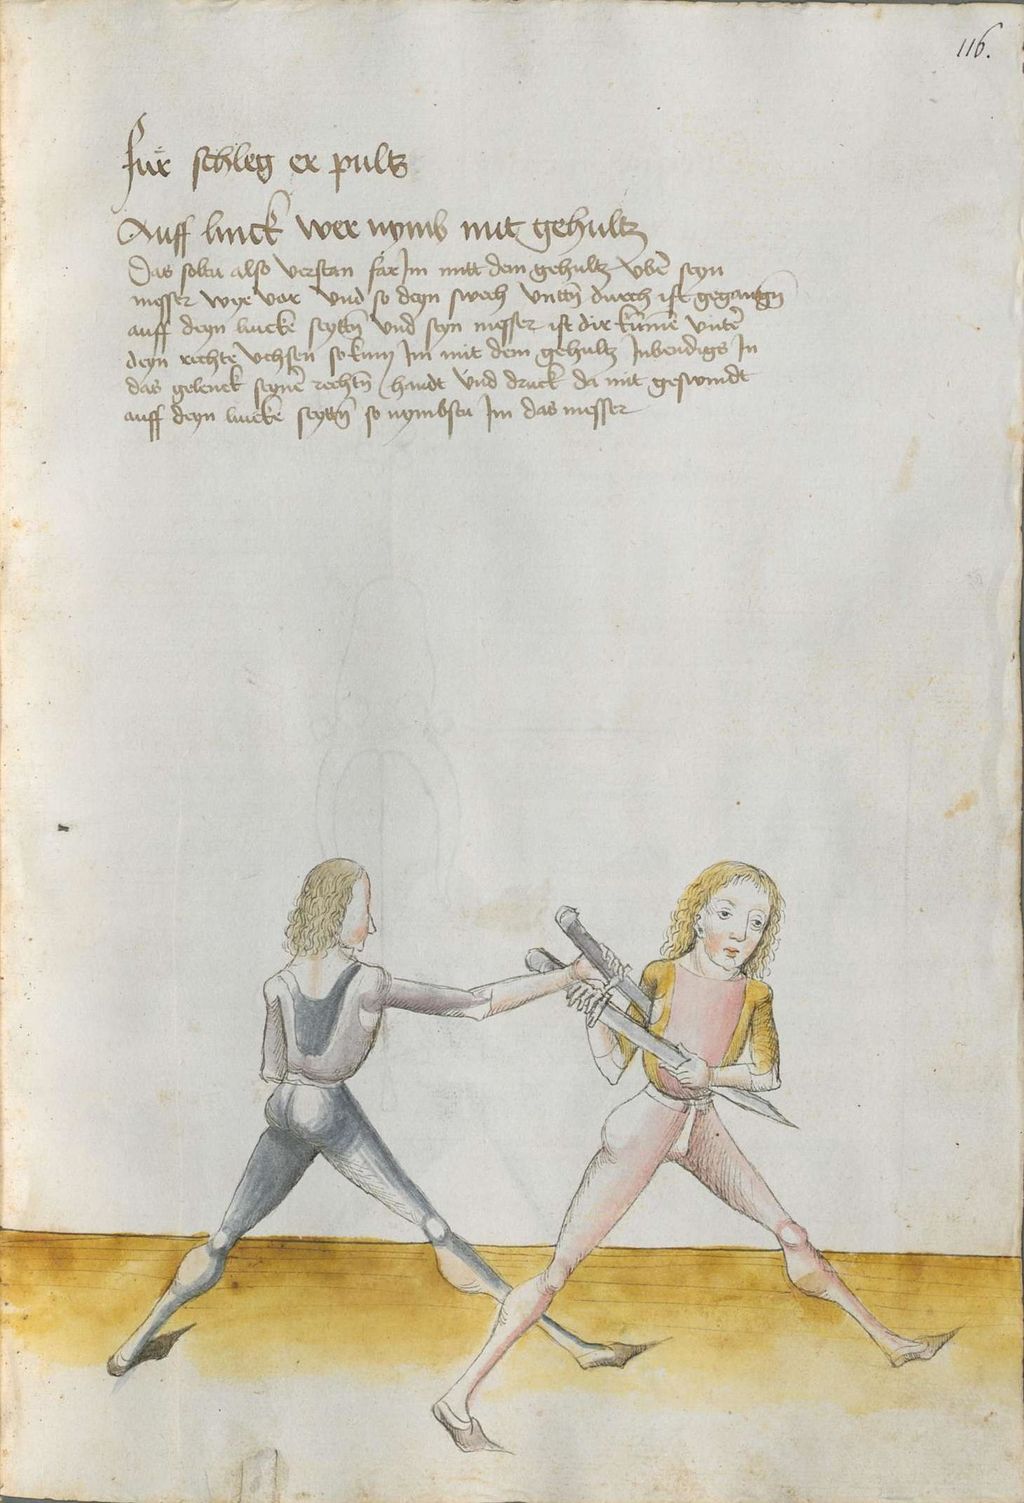 116.
Für schleg er pultz
Auff linck wer nymb mit gehültz
Das soltu also verstan far Im mitt dem gehultz vbē seyn
messer wye vor Vnd so deyn swech vnttñ durch ist gegangñ
auff deyn lincke seyttñ Vnd seyn messer ist dir kūmē vntē
deyn richte vchsen so kum Im mit dem gehultz Inbendigs In
das gelenck seynē rechtñ handt Vnd druck da mit geswindt
auff deyn lincke seyttñ so nymbstu Im das messer